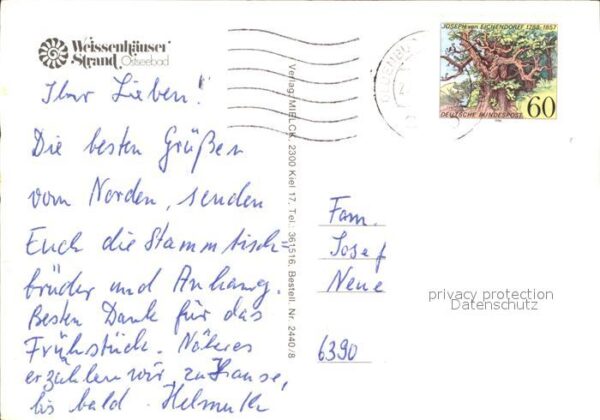 Weissenhäuser
Strand Ostseebad
Ihr Lieben!
Die besten Grüßen
vom Norden, senden
Euch die Stammtisch=
brüder und Anhang.
Besten Dank für das
Frühstück. Näheres
erzählen wir zu Hause,
bis bald. Helmuth
Verlag MIELCK, 2300 Kiel 17, Tel.: 361516, Bestell. Nr. 2440/8
JOSEPH von EICHENDORFF 1788-1857
60
DEUTSCHE BUNDESPOST
Fam.
Josef
Neue
6390
privacy protection
Datenschutz